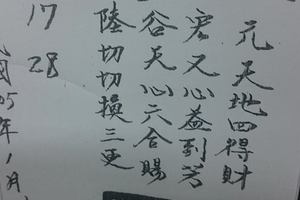 元天地四得財
宏又心益到苦
谷天心六合賜
陸切切換三更
17 28
05年1月